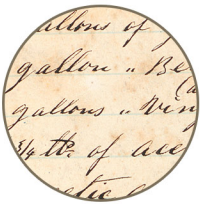 allons of
gallon " Be
gallons " Win
3/4 lb. of ace
etic